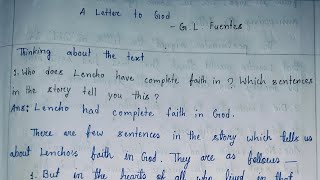 A Letter to God
- G.L Fuentes
Thinking about the text
1. Who does Lencho have complete faith in? Which sentences
in the story tell you this?
Ans: Lencho had complete faith in God.
There are few sentences in the story which tells us
about Lencho's faith in God. They are as follows —
1. But in the hearts of all who lived in that